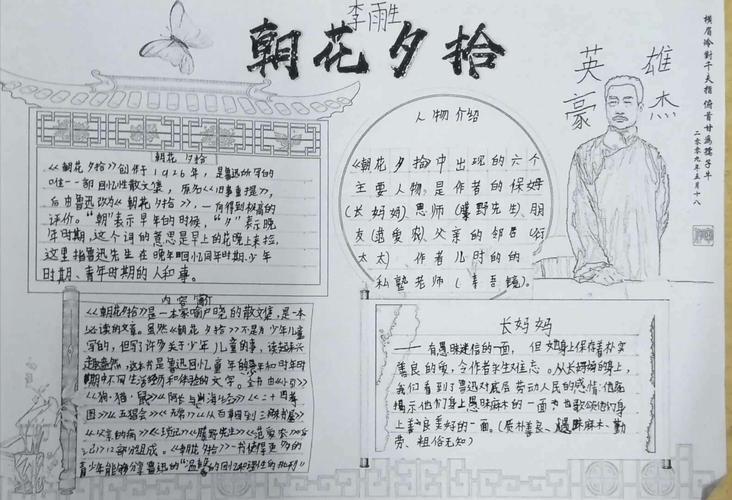 李雨生
朝花夕拾
英雄
豪杰
橫眉冷對千夫指 俯首甘為孺子牛
二〇〇九年五月十八
朝花 夕拾
《朝花夕拾》创作于1926年,是鲁迅所写的
唯一一部回忆性散文集,原名《旧事重提》,
后由鲁迅改为《朝花夕拾》,一向得到极高的
评价。“朝”表示早年的时候,“夕”表示晚
年时期,这个词的意思是早上的花晚上来捡,
这里指鲁迅先生在晚年回忆同年时期、少年
时期、青年时期的人和事。
人物介绍
《朝花夕拾》中出现的六个
主要人物,是作者的保姆
(长妈妈)恩师(藤野先生)、朋
友(范爱农)、父亲的邻居(衍
太太) 作者儿时的的
私塾老师(寿吾镜)。
内容简介
《朝花夕拾》是一本家喻户晓的散文集,是一本
必读的文著。虽然《朝花夕拾》不是为少年儿童
写的,但写了许多关于少年儿童的事,读起来兴
趣盎然,这本书是鲁迅回忆童年的
期中不同生活经历和体验的文字。全书由《小引》
《狗·猫·鼠》《阿长与山海经》《二十四孝
图》《五猖会》《无常》《从百草园到三味书屋》
《父亲的病》《琐记》《藤野先生》《范爱农》
12部分组成。《朝花夕拾》一书使得更多的
青少年能够分享鲁迅的“温馨的回忆和理性的批判”
长妈妈
——有愚昧迷信的一面,但她身上保存着朴实
善良的爱,令作者永生难忘。从长妈妈的身上,
我们看到了鲁迅对底层劳动人民的感情:他既
揭示他们身上愚昧麻木的一面,也歌颂他们身
上善良美好的一面。(质朴善良、愚昧麻木、勤
劳、粗俗无知)